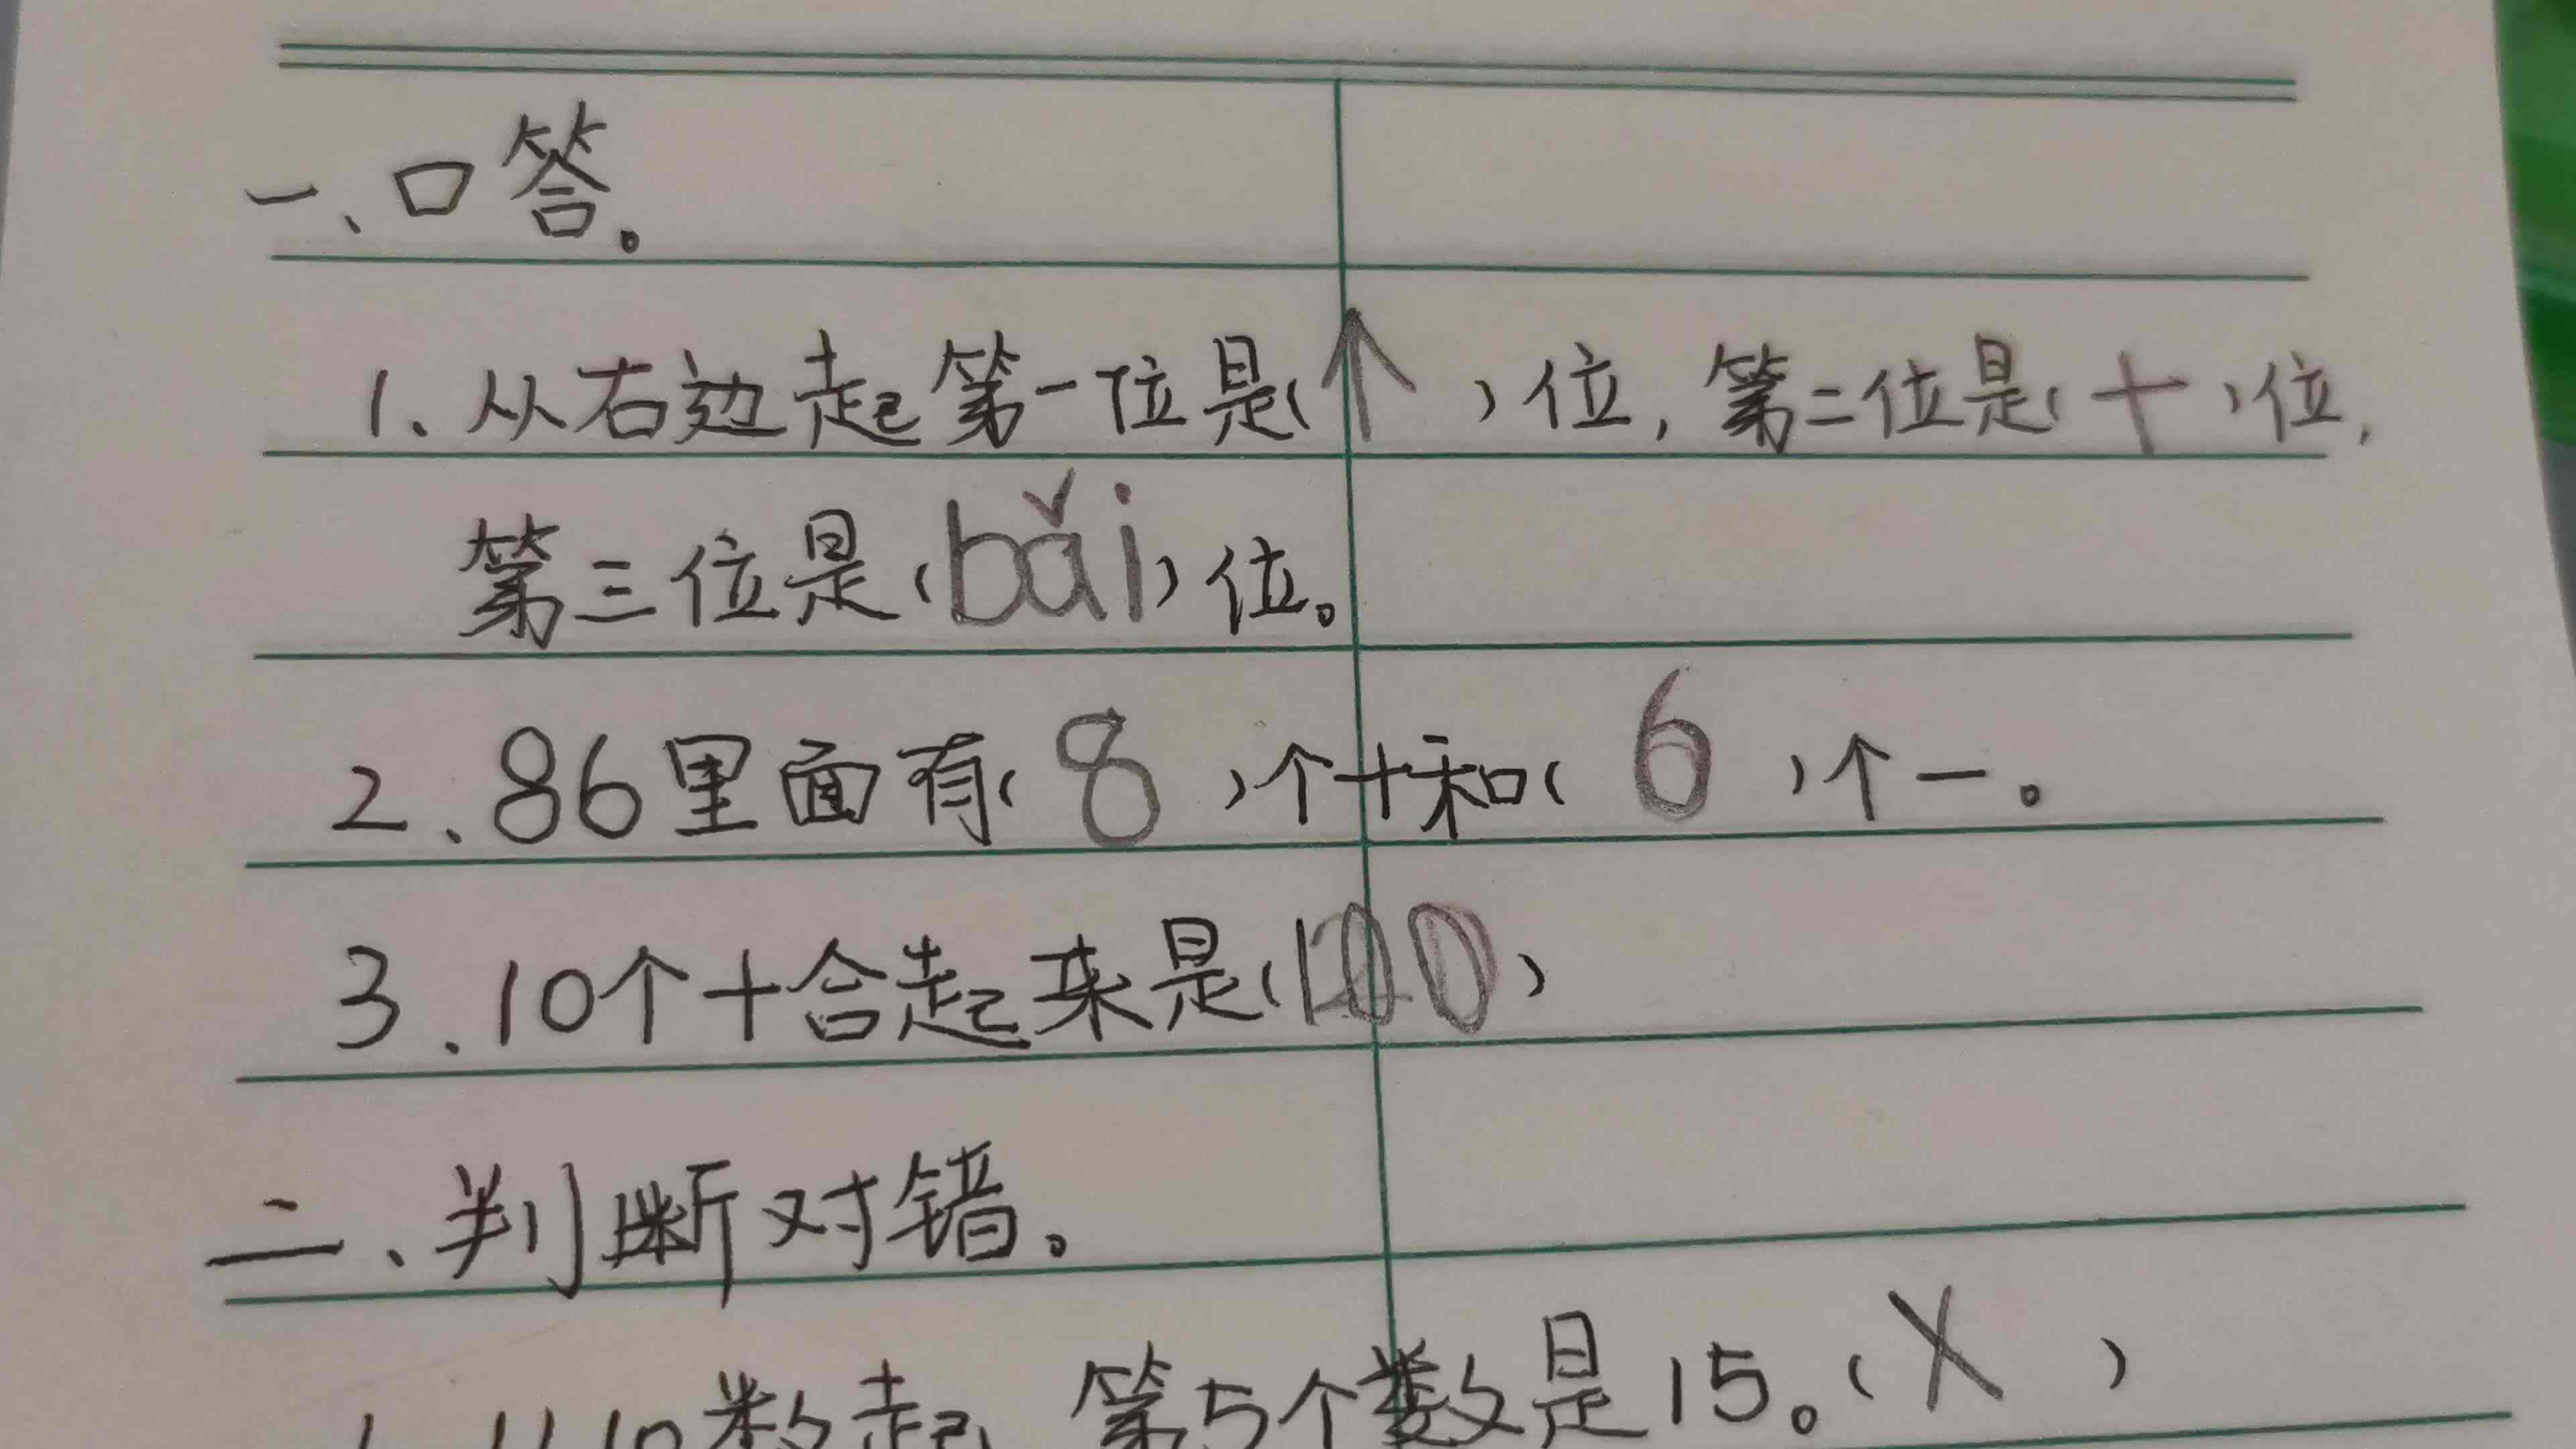 一、口答。
1、从右边起第一位是(个)位,第二位是(十)位,
第三位是(bǎi)位。
2、86里面有(8)个十和(6)个一。
3、10个十合起来是(100)
二、判断对错。
1、从10数起,第5个数是15。(X)